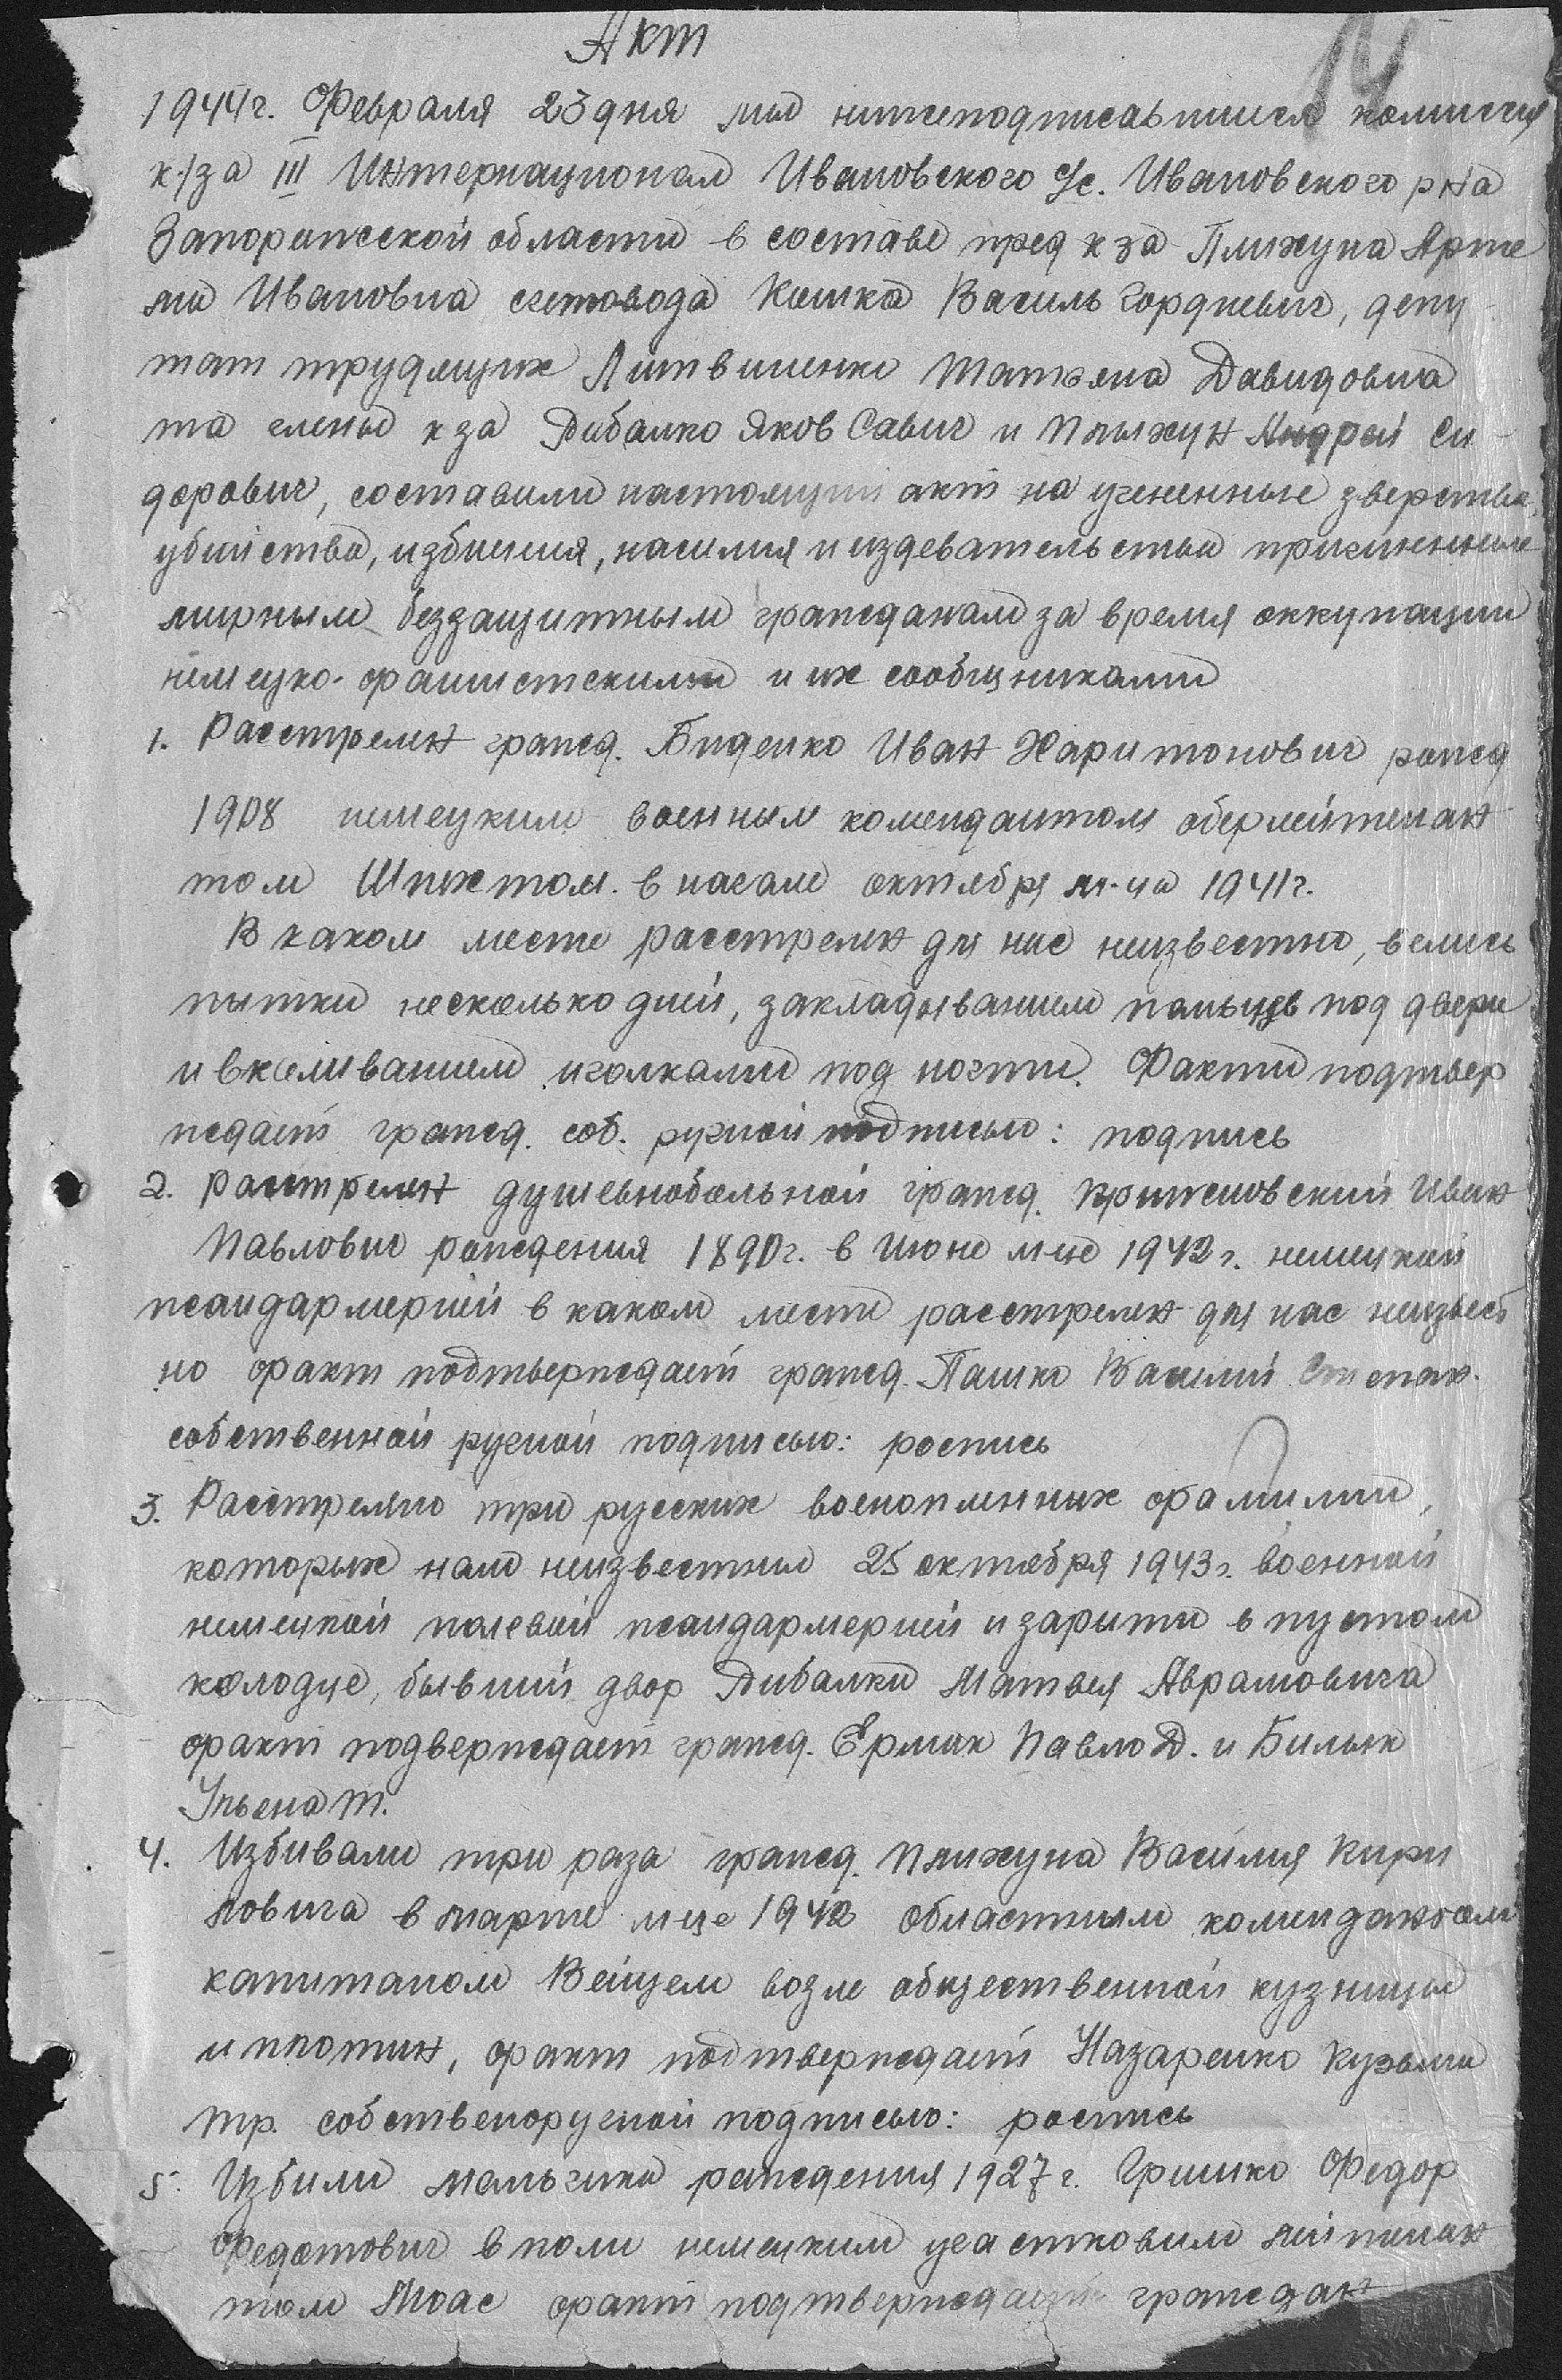 Акт
14
1944г. Февраля 23 дня мы нижеподписавшиеся комиссия
к-/за III Интернационал Ивановского с/с. Ивановского р-на
Запорожской области в составе пред к за Плихуна Арте
ма Ивановиа счетовода Кошка Василь Гордиевич, депу
тат трудящих Литвиненко Татьяна Давидовна
та члены к за Дибалко Яков Савич и Плыхун Андрей Си-
дорович, составили настоящий акт на учененные зверства,
убийства, избиения, насилия и издевательства причиненные
мирным беззащитным гражданам за время оккупации
немецко-фашистскими и их сообщниками
1. Расстрелян гражд. Биденко Иван Харитонович рожд
1908 немецким военным комендантом оберлейтенан
том Шпихтом. в начале октября м-ца 1941г.
В каком месте расстрелян для нас неизвестно, велись
пытки несколько дней, закладыванием пальцев под двери
и вкаливанием иголками под ногти. Факти подтвер
ждает гражд. соб. ручной подписью: подпись
2. Расстрелян душевнобольной гражд. Иван
Павлович рождения 1890г. в июне м-це 1942г. немецкой
жандармерией в каком месте расстрелян для нас неизвест
но факт подтверждает гражд. Пашко Василий Степан.
собственной ручной подписью: роспись
3. Расстреляно три русских военопленных фамилии,
которых нам неизвестны 25 октября 1943г. военной
немецкой полевой жандармерией и зариты в пустом
колодце, бывший двор Дибалки Матвея Аврамовича
факт подверждает гражд. Ермак Павло Д. и Билык
Ульена Т.
4. Избивали три раза гражд. Плихуна Василия Кири
ловича в марте м-це 1942 областным комендантом
капитаном Вейцем возле общественной кузницы
и плотин, факт подтверждает Назаренко Кузьма
Тр. собственоручной подписью: роспись
5. Избили мальчика рождения 1927г. Гришко Федор
Федотович в поли немецким участковим лейтенан
том Моас факт подтверждает граждан